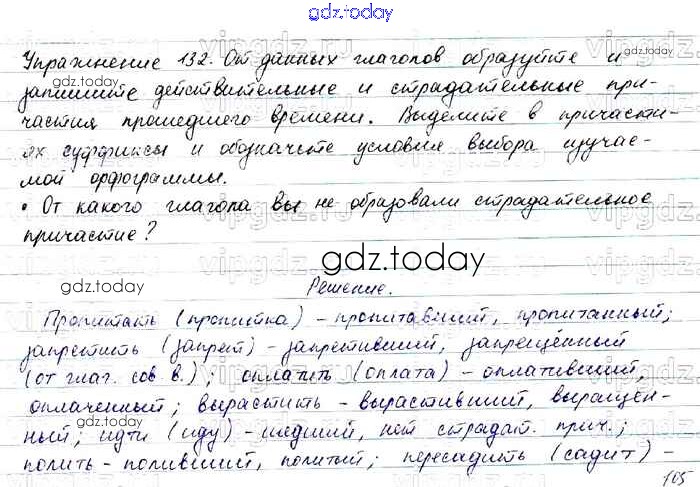 gdz.today
Упражнение 132. От данных глаголов образуйте и
gdz.today
запишите действительные и страдательные при-
частия прошедшего времени. Выделите в причасти-
ях суффиксы и обозначьте условие выбора изучае-
мой орфограммы.
• От какого глагола вы не образовали страдательное
причастие?
gdz.today
gdz.today
Решение.
Пропитать (пропитка) - пропитавший, пропитанный;
запретить (запрет) - запретивший, запрещённый
(от глаг. сов в.); оплатить (оплата) - оплативший,
оплаченный; вырастить - вырастивший, выращен-
ный; идти (иду) - шедший, нет страдат. прич.;
полить - поливший, политый; пересадить (садит) -
gdz.today
105